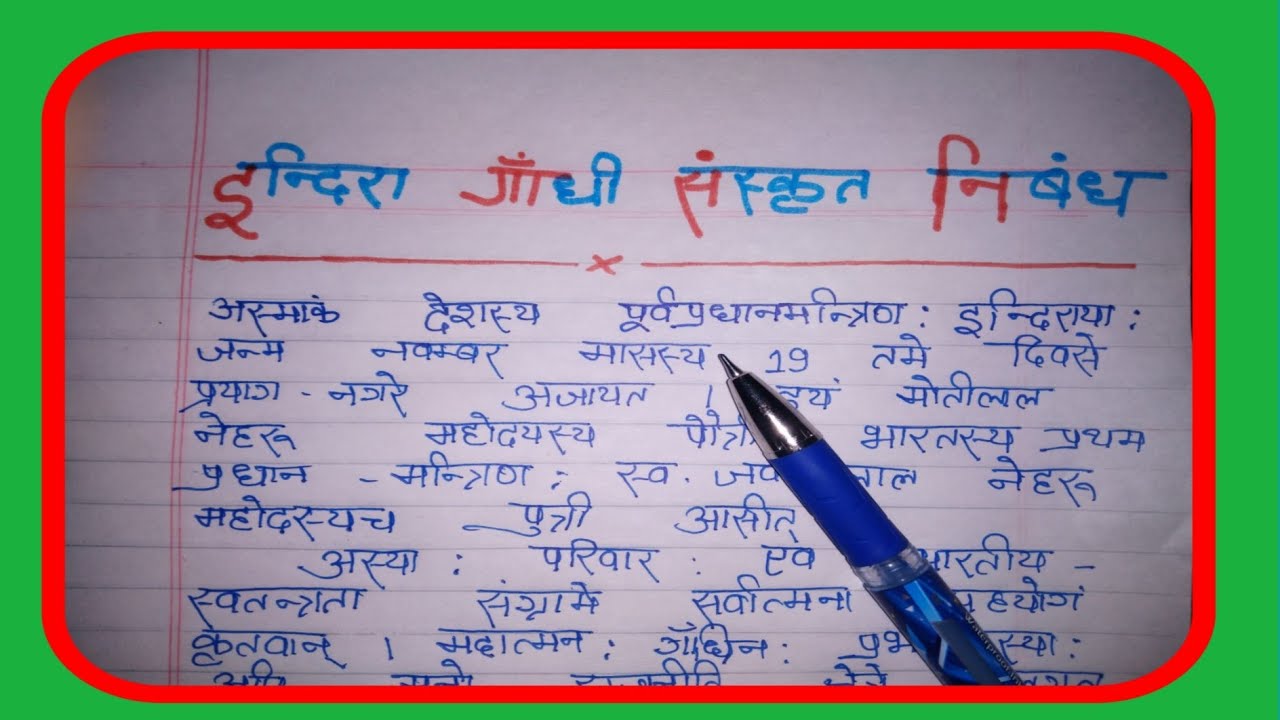 इन्दिरा गाँधी संस्कृत निबंध
अस्माकं देशस्य पूर्वप्रधानमन्त्रिण: इन्दिराया:
जन्म नवम्बर मासस्य 19 तमे दिवसे
प्रयाग - नगरे अजायत । मोतीलाल
नेहरू महोदयस्य भारतस्य प्रथम
प्रधान - मन्त्रिण: स्व. नेहरू
महोदस्यच पुत्री आसीत्
अस्या: परिवार:
स्वतन्त्रता संग्रामे सर्वात्मना
कृतवान् । महात्मन: गाँधिन: